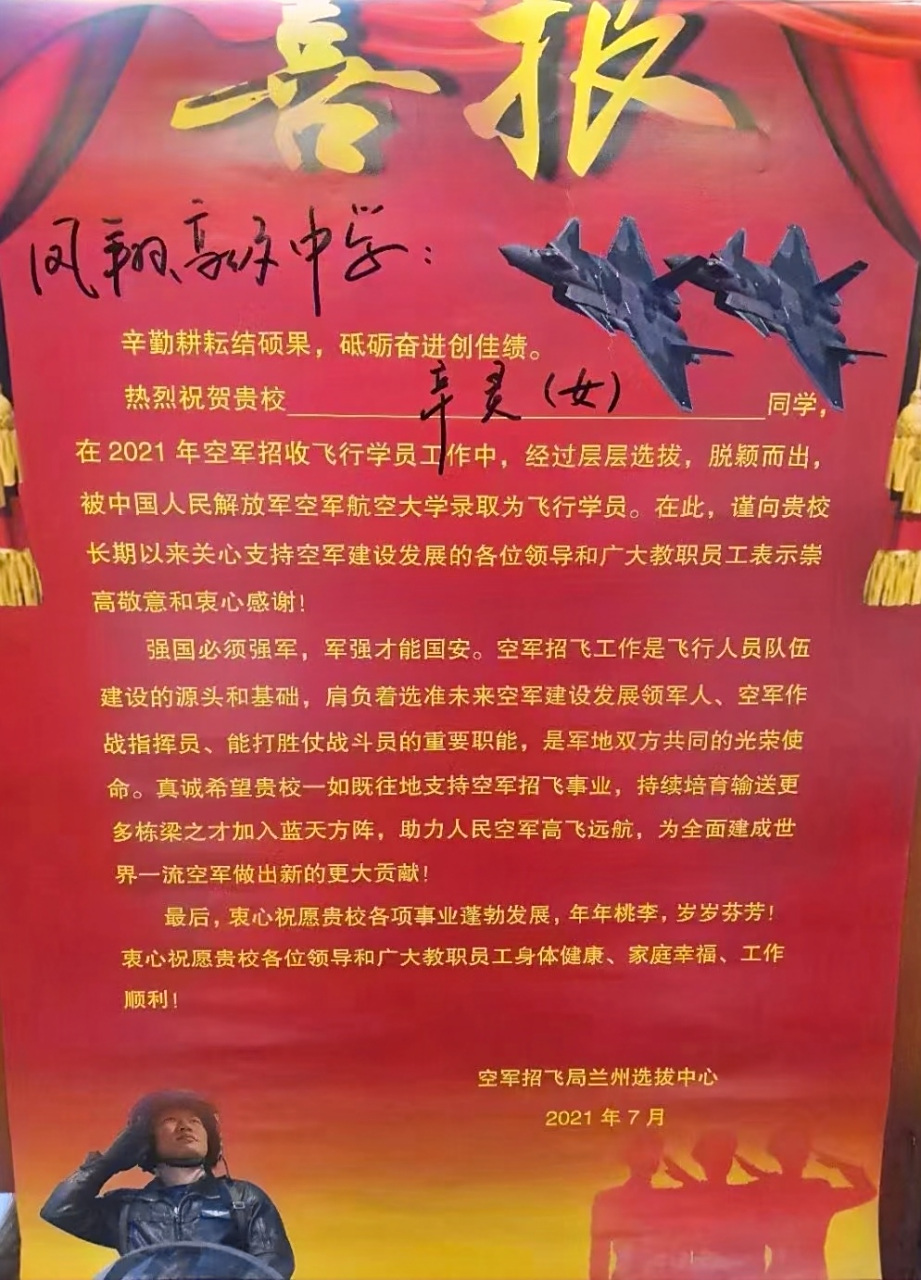 喜报
凤翔高级中学：
辛勤耕耘结硕果，砥砺奋进创佳绩。
热烈祝贺贵校 辛灵（女） 同学，
在 2021 年空军招收飞行学员工作中，经过层层选拔，脱颖而出，
被中国人民解放军空军航空大学录取为飞行学员。在此，谨向贵校
长期以来关心支持空军建设发展的各位领导和广大教职员工表示崇
高敬意和衷心感谢！
强国必须强军，军强才能国安。空军招飞工作是飞行人员队伍
建设的源头和基础，肩负着选准未来空军建设发展领军人、空军作
战指挥员、能打胜仗战斗员的重要职能，是军地双方共同的光荣使
命。真诚希望贵校一如既往地支持空军招飞事业，持续培育输送更
多栋梁之才加入蓝天方阵，助力人民空军高飞远航，为全面建成世
界一流空军做出新的更大贡献！
最后，衷心祝愿贵校各项事业蓬勃发展，年年桃李，岁岁芬芳！
衷心祝愿贵校各位领导和广大教职员工身体健康、家庭幸福、工作
顺利！
空军招飞局兰州选拔中心
2021 年 7 月